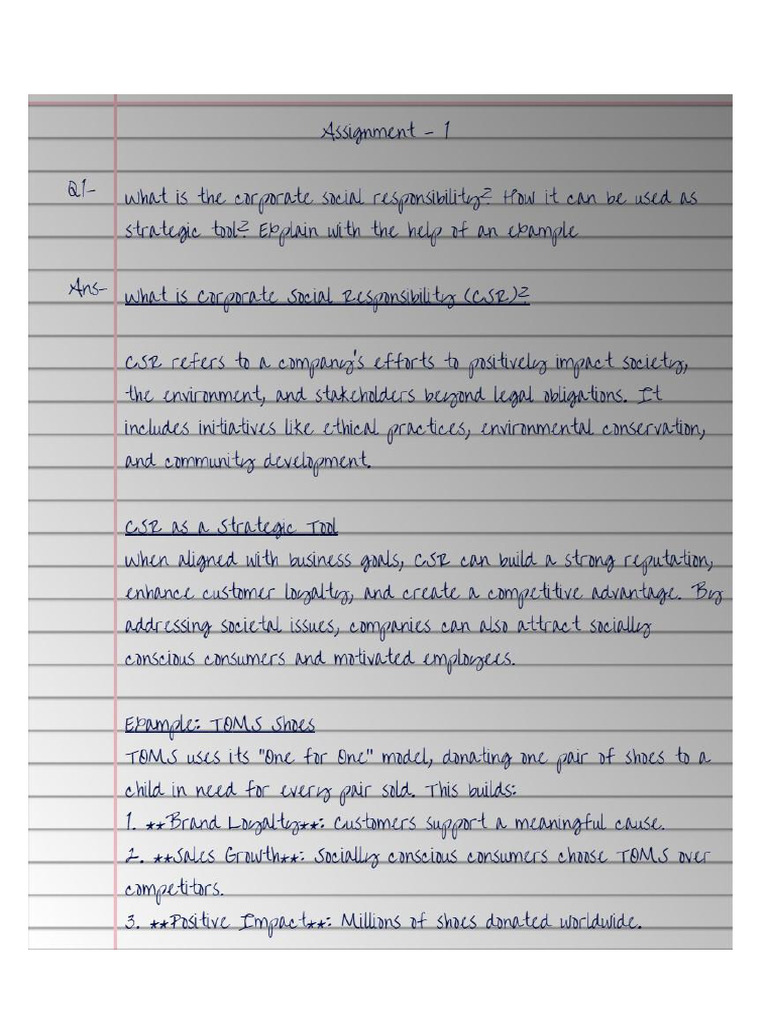 Assignment - 1
Q1- What is the corporate social responsibility? How it can be used as
strategic tool? Explain with the help of an example
Ans- What is Corporate Social Responsibility (CSR)?
CSR refers to a company's efforts to positively impact society,
the environment, and stakeholders beyond legal obligations. It
includes initiatives like ethical practices, environmental conservation,
and community development.
CSR as a Strategic Tool
When aligned with business goals, CSR can build a strong reputation,
enhance customer loyalty, and create a competitive advantage. By
addressing societal issues, companies can also attract socially
conscious consumers and motivated employees.
Example: TOMS Shoes
TOMS uses its "One for One" model, donating one pair of shoes to a
child in need for every pair sold. This builds:
1. **Brand Loyalty**: Customers support a meaningful cause.
2. **Sales Growth**: Socially conscious consumers choose TOMS over
competitors.
3. **Positive Impact**: Millions of shoes donated worldwide.